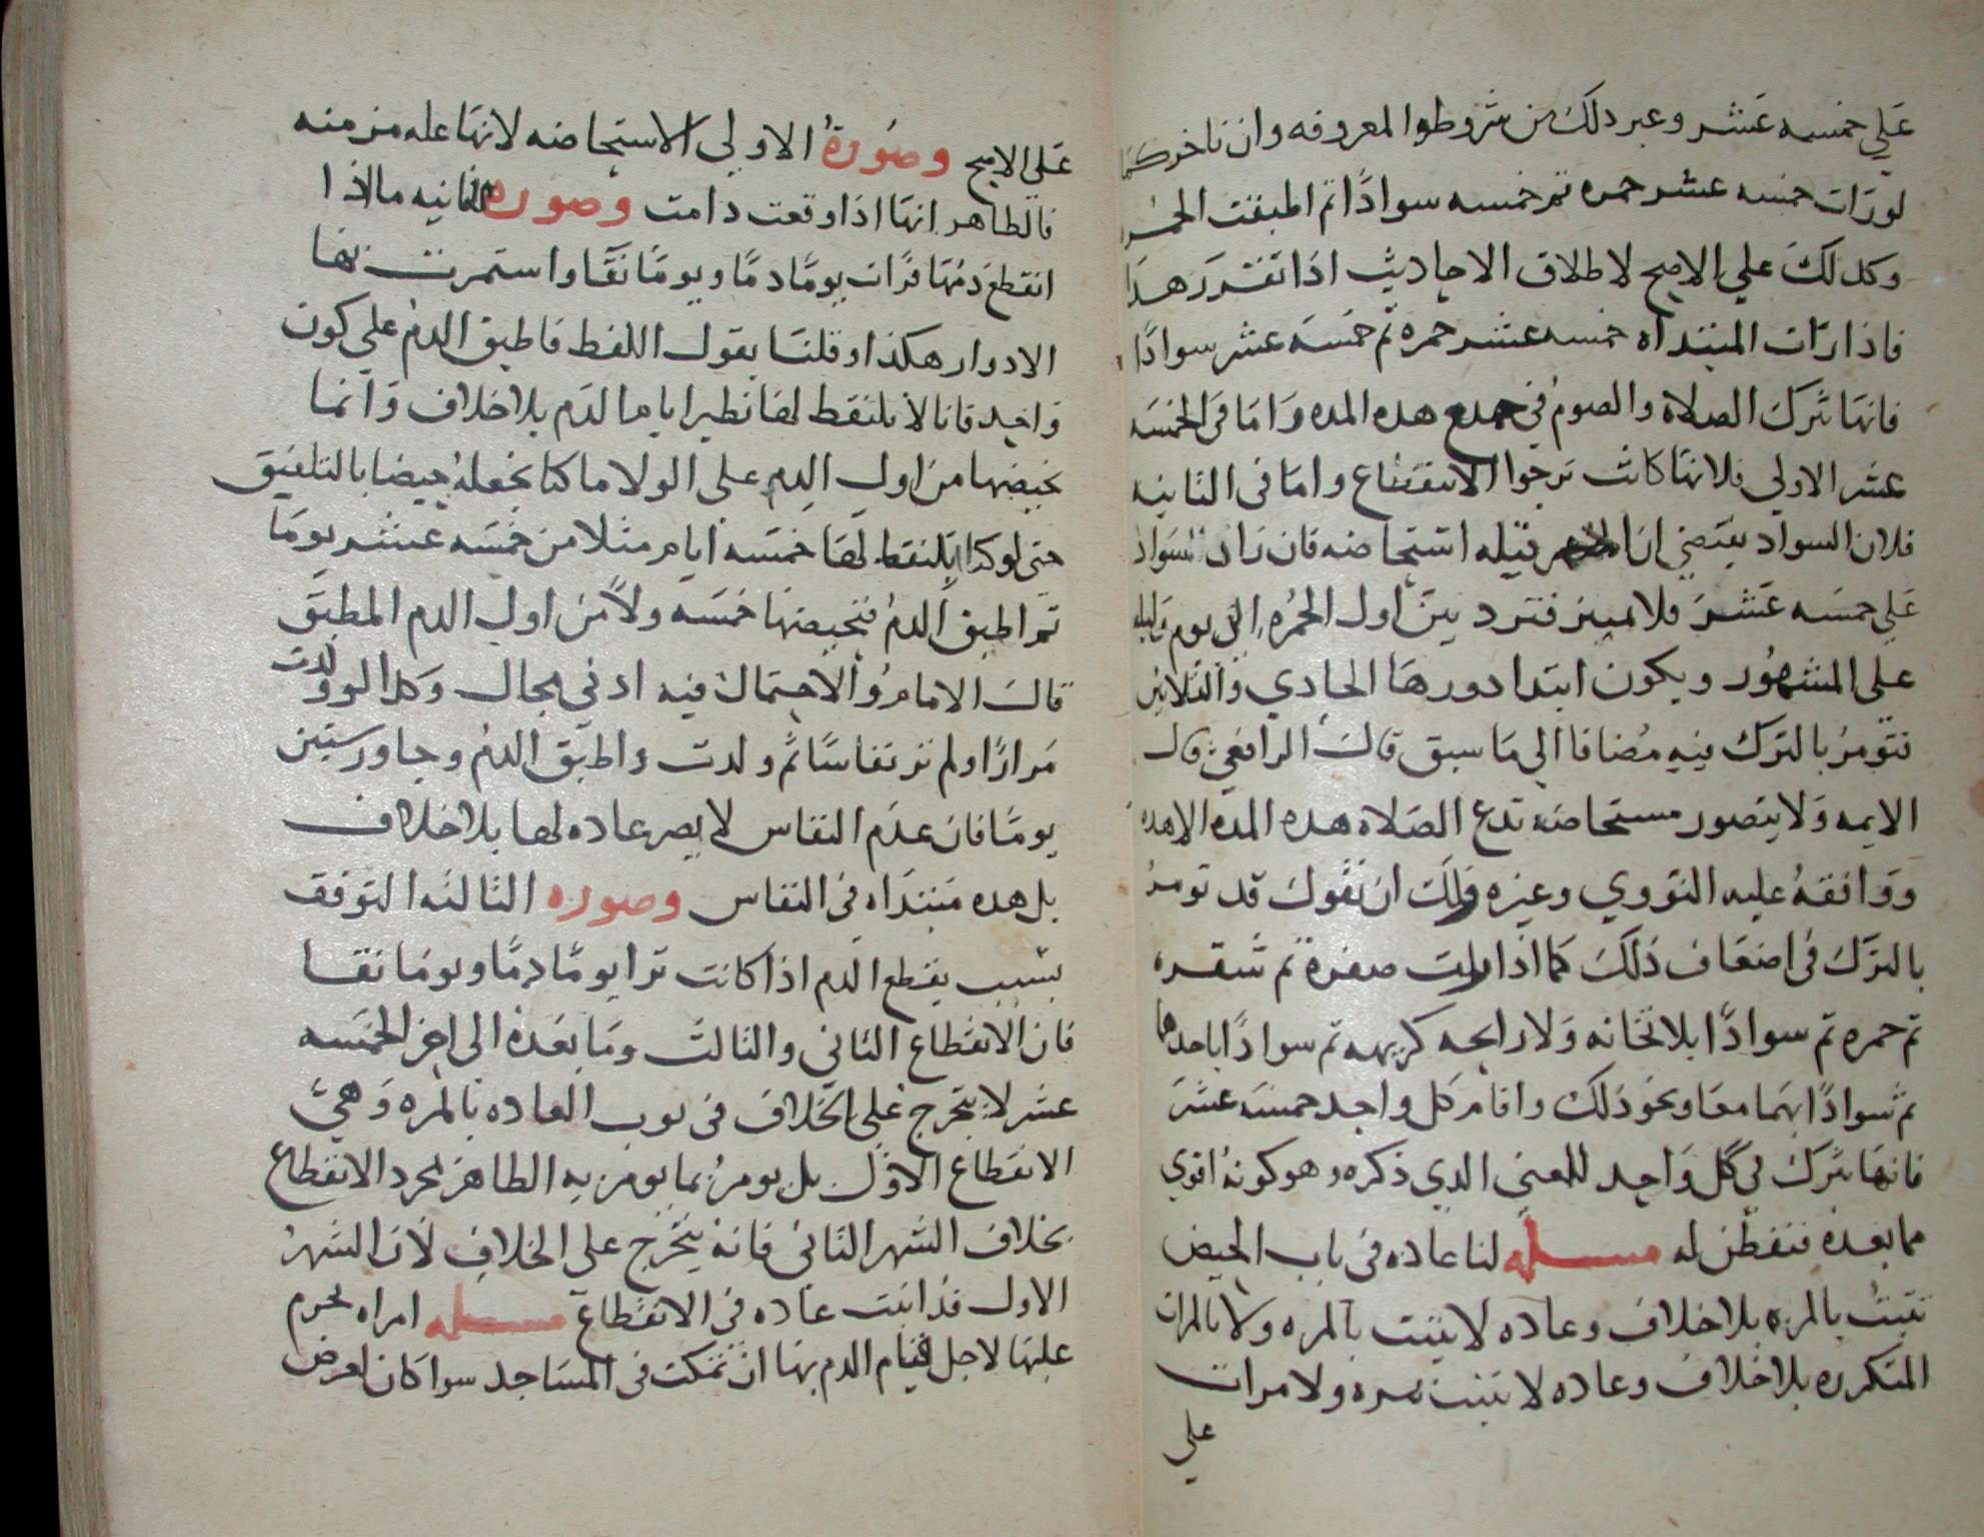 علي خمسه عشر وعير دلك من شروطوا المعروفه وان تاخر كما
لورات خمسه عشر حمره تم خمسه سوادًا تم اطبقت الحمره
وكدلك علي الاصح لاطلاق الاحاديث اذا تقرر هدا
فاذا رات المبتداه خمسه عشر حمره تم خمسه عشر سوادًا
فانها تترك الصلاة والصوم في جميع هده المده واما في الخمسه
عشر الاولي فلانها كانت ترجوا الانقطاع واما في الثانيه
فلان السواد يقتضي ان الحمره قبله استحاضه فان زاد السواد
علي خمسه عشر فلا تمييز فترد من اول الحمره الي يوم وليله
على المشهور ويكون ابتدا دورها الحادي والثلاثين
فتومر بالترك فيه مضافا الي ما سبق قال الرافعي قال
الايمه ولا يتصور مستحاضه تدع الصلاه هده المده الا هده
ووافقه عليه النووي وغيره ولك ان تقول قد تومر
بالترك في اضعاف ذلك كما اذا رات صفرة تم شقره
تم حمره تم سوادًا بلا ثخانه ولا رايحه كريهه تم سوادًا باحدهما
تم سوادًا بهما معا ونحو ذلك واقام كل واحد خمسه عشر
فانها تترك في كل واحد للمعني الدي ذكره وهو كونه اقوي
مما بعده فتفطن له مسله لنا عاده في باب الحيض
تثبت بالمره بلا خلاف وعاده لا يثبت بالمره ولا بالمرات
المتكرره بلا خلاف وعاده لا تثبت بمره ولا مرات
علي
على الاصح وصورة الاولي الاستحاضه لانها عله مزمنه
فالظاهر انها اذا وقعت دامت وصورة الثانيه ما اذا
انقطع دمها فرات يومًا دمًا ويومًا نقًا واستمرت بها
الادوار هكذا وقلنا بقول اللقط فاطبق الدم علي كون
واحد فانا لا نلتقط لها نظير ايام الدم بلا خلاف وانما
نحيضها من اول الدم على الولا ما كنا نجعله حيضا بالتلفيق
حتى لو كنا نلتقط لها خمسه ايام مثلا من خمسه عشر يوما
تم اطبق الدم فنحيضها خمسه ولاً من اول الدم المطبق
قال الامام والاحتمال فيه ادني مجال وكدا لو ولدت
مرارًا ولم تر نفاسًا ثم ولدت واطبق الدم وجاوز ستين
يومًا فان عدم النفاس لا يصير عاده لها بلا خلاف
بل هده مبتداه في النفاس وصوره الثالثه التوقف
بسبب تقطع الدم اذا كانت ترا يومًا دمًا ويومًا نقا
فان الانقطاع الثاني والثالث وما بعده الى اخر الخمسه
عشر لا يتخرج علي الخلاف في ثبوت العاده بالمره وهي
الانقطاع الاول بل يومر بما يومر به الطاهر لمجرد الانقطاع
بخلاف الشهر الثاني فانه يتخرج على الخلاف لان الشهر
الاول قد اثبت عاده في الانقطاع مسله امراه تحرم
عليها لاجل قيام الدم بها ان تمكث في المساجد سوا كان لعرض